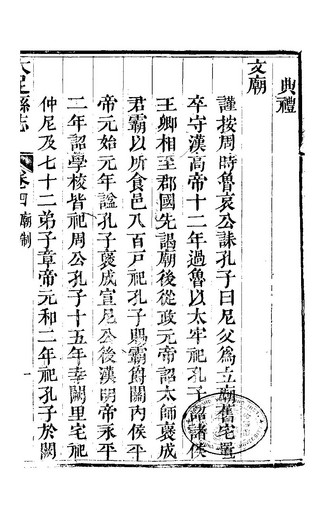 典禮
文廟
謹按周時魯哀公誄孔子曰尼父爲立廟舊宅置
卒守漢高帝十二年過魯以太牢祀孔子詔諸侯
王卿相至郡國先謁廟後從政元帝詔太師褒成
君霸以所食邑八百戸祀孔子賜霸爵關內侯平
帝元始元年諡孔子褒成宣尼公後漢明帝永平
二年詔學校皆祀周公孔子十五年幸闕里宅祀
仲尼及七十二弟子章帝元和二年祀孔子於闕
大足縣志
卷四
廟制
一